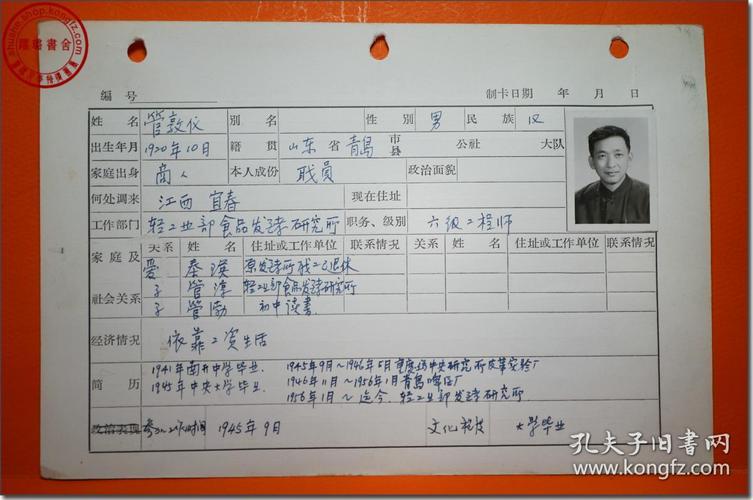 shushe.shop.kongfz.com
雅醫書舍
编号
制卡日期 年 月 日
姓名 管敦仪 别名 性别 男 民族 汉
出生年月 1920年10日 籍贯 山东 省 青岛 市县 公社 大队
家庭出身 商人 本人成份 职員 政治面貌
何处调来 江西 宜春 现在住址
工作部门 轻工业部食品发酵研究所 职务、级别 六级工程师
家庭及社会关系 关系 姓名 住址或工作单位 联系情况 关系 姓名 住址或工作单位 联系情况
爱 秦瑛 原发酵所职工已退休
子 管淳 轻工业部食品发酵研究所
子 管渤 初中读书
经济情况 依靠工资生活
简历 1941年南开中学毕业. 1945年9月~1946年5月重庆 中央研究所皮革实验厂
1945年中央大学毕业. 1946年11月~1956年1月青岛啤酒厂
1956年1月~迄今. 轻工业部发酵研究所
政治表现 参加工作时间 1945年9月 文化程度 大学毕业
孔夫子旧书网
www.kongfz.com